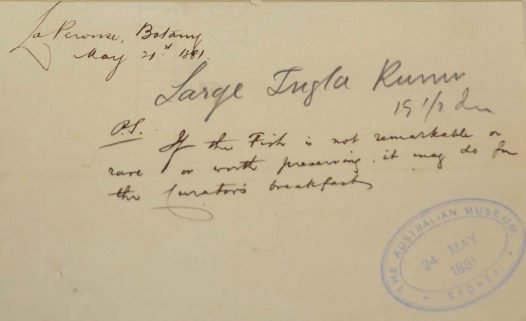 La Perouse, Botany
May 21st 1881.
Large Ingla
19 1/2
P.S. If the Fish is not remarkable or
rare or worth preserving. it may do for
the Curator's breakfast
THE AUSTRALIAN MUSEUM
24 MAY
1881
SYDNEY